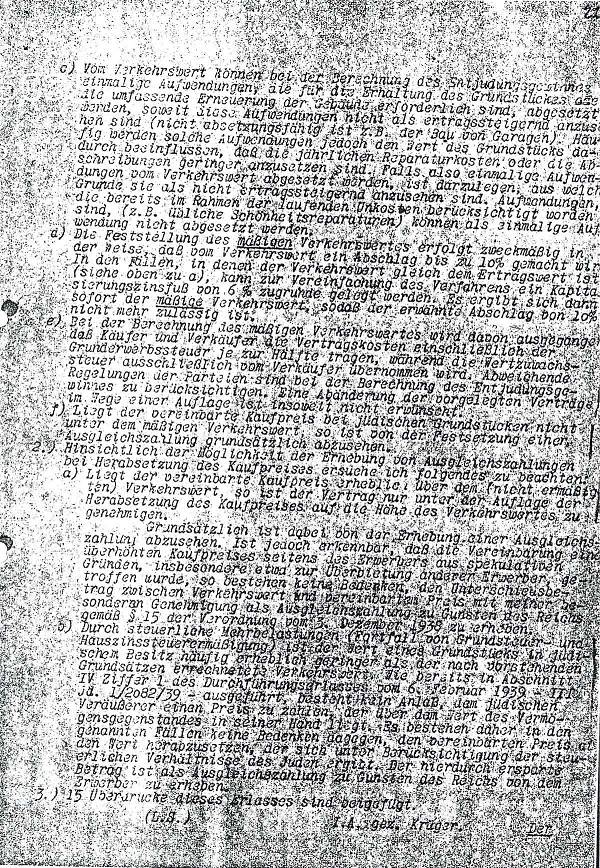 22
c) Vom Verkehrswert können bei der Berechnung des Entjudungsgewinnes
einmalige Aufwendungen, die für die Erhaltung des Grundstückes
die umfassende Erneuerung der Gebäude erforderlich sind, abgesetzt
werden, soweit diese Aufwendungen nicht als ertragssteigernd anzuse
hen sind (nicht absetzungsfähig ist z.B. der Bau von Garagen). Häu-
fig werden solche Aufwendungen jedoch den Wert des Grundstücks da-
durch beeinflussen, daß die jährlichen Reparaturkosten oder die Ab-
schreibungen geringer anzusetzen sind. Falls also einmalige Aufwen-
dungen vom Verkehrswert abgesetzt werden, ist darzulegen, aus welch
Grunde sie als nicht ertragssteigernd anzusehen sind. Aufwendungen,
die bereits im Rahmen der laufenden Unkosten berücksichtigt worden
sind, (z.B. übliche Schönheitsreparaturen) können als einmalige Auf
wendung nicht abgesetzt werden.
d) Die Feststellung des mäßigen Verkehrswertes erfolgt zweckmäßig in
der Weise, daß vom Verkehrswert ein Abschlag bis zu 10% gemacht wir
In den Fällen, in denen der Verkehrswert gleich dem Ertragswert ist
(siehe oben zu a), kann zur Vereinfachung des Verfahrens ein Kapita
sierungszinsfuß von 6 % zugrunde gelegt werden. Es ergibt sich dann
sofort der mäßige Verkehrswert, sodaß der erwähnte Abschlag von 10%
nicht mehr zulässig ist.
e) Bei der Berechnung des mäßigen Verkehrswertes wird davon ausgegange
daß Käufer und Verkäufer die Vertragskosten einschließlich der
Grunderwerbssteuer je zur Hälfte tragen, während die Wertzuwachs-
steuer ausschließlich vom Verkäufer übernommen wird. Abweichende
Regelungen der Parteien sind bei der Berechnung des Entjudungsge-
winnes zu berücksichtigen. Eine Abänderung der vorgelegten Verträge
im Wege einer Auflage ist insoweit nicht erwünscht.
f) Liegt der vereinbarte Kaufpreis bei jüdischen Grundstücken nicht
unter dem mäßigen Verkehrswert, so ist von der Festsetzung einer
Ausgleichszahlung grundsätzlich abzusehen.
2.) Hinsichtlich der Möglichkeit der Erhebung von Ausgleichszahlungen
bei Herabsetzung des Kaufpreises ersuche ich folgendes zu beachten:
a) Liegt der vereinbarte Kaufpreis erheblich über dem (nicht ermäßig
ten) Verkehrswert, so ist der Vertrag nur unter der Auflage der
Herabsetzung des Kaufpreises auf die Höhe des Verkehrswertes zu
genehmigen.
Grundsätzlich ist dabei von der Erhebung einer Ausgleichs-
zahlung abzusehen. Ist jedoch erkennbar, daß die Vereinbarung eine
überhöhten Kaufpreises seitens des Erwerbers aus spekulativen
Gründen, insbesondere etwa zur Überbietung anderer Erwerber, ge-
troffen wurde, so bestehen keine Bedenken, den Unterschiedsbe-
trag zwischen Verkehrswert und vereinbartem Preis mit meiner be-
sonderen Genehmigung als Ausgleichszahlung zu Gunsten des Reichs
gemäß § 15 der Verordnung vom 3. Dezember 1938 zu erheben.
b) Durch steuerliche Mehrbelastungen (Fortfall von Grundsteuer- und
Hauszinssteuerermäßigung) ist der Wert eines Grundstücks in jüdi-
schem Besitz häufig erheblich geringer als der nach vorstehenden
Grundsätzen errechnete Verkehrswert. Wie bereits in Abschnitt
IV Ziffer 1 des Durchführungserlasses vom 6. Februar 1939 - III
Jd. 1/2082/39 - ausgeführt, besteht kein Anlaß, dem jüdischen
Veräußerer einen Preis zu zahlen, der über dem Wert des Vermö-
gensgegenstandes in seiner Hand liegt. Es bestehen daher in den
genannten Fällen keine Bedenken dagegen, den vereinbarten Preis a
den Wert herabzusetzen, der sich unter Berücksichtigung der steu-
erlichen Verhältnisse des Juden ergibt. Der hierdurch ersparte
Betrag ist als Ausgleichszahlung zu Gunsten des Reichs von dem
Erwerber zu erheben.
3.) 15 Überdrucke dieses Erlasses sind beigefügt.
(L.S.) I.A. gez. Krüger.
Der